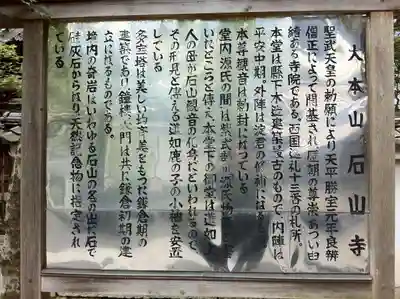 大本山石山寺
聖武天皇の勅願により天平勝宝元年良辨
僧正によって開基され歴朝の尊崇あつい由
緒ある寺院である。西国巡礼十三番の札所。
本堂は縣下木造建築最古のもので、内陣は
平安中期、外陣は淀君の修補になる。
本尊観音は勅封になっている
堂内源氏の間は紫式部が源氏物語を
いたところと傳え、本堂下の御堂は道如上
人の母が石山観音の化身といわれるので、
その形見と傳える道如鹿の子の小袖を安置
している
多宝塔は美しい均斉美をもつた鎌倉期の
建築であり鐘樓、門は共に鎌倉初期の建
立になるものである。
境内の奇岩はいわゆる石山の名の出た石で
硅灰石からなり天然記念物に指定され
ている。